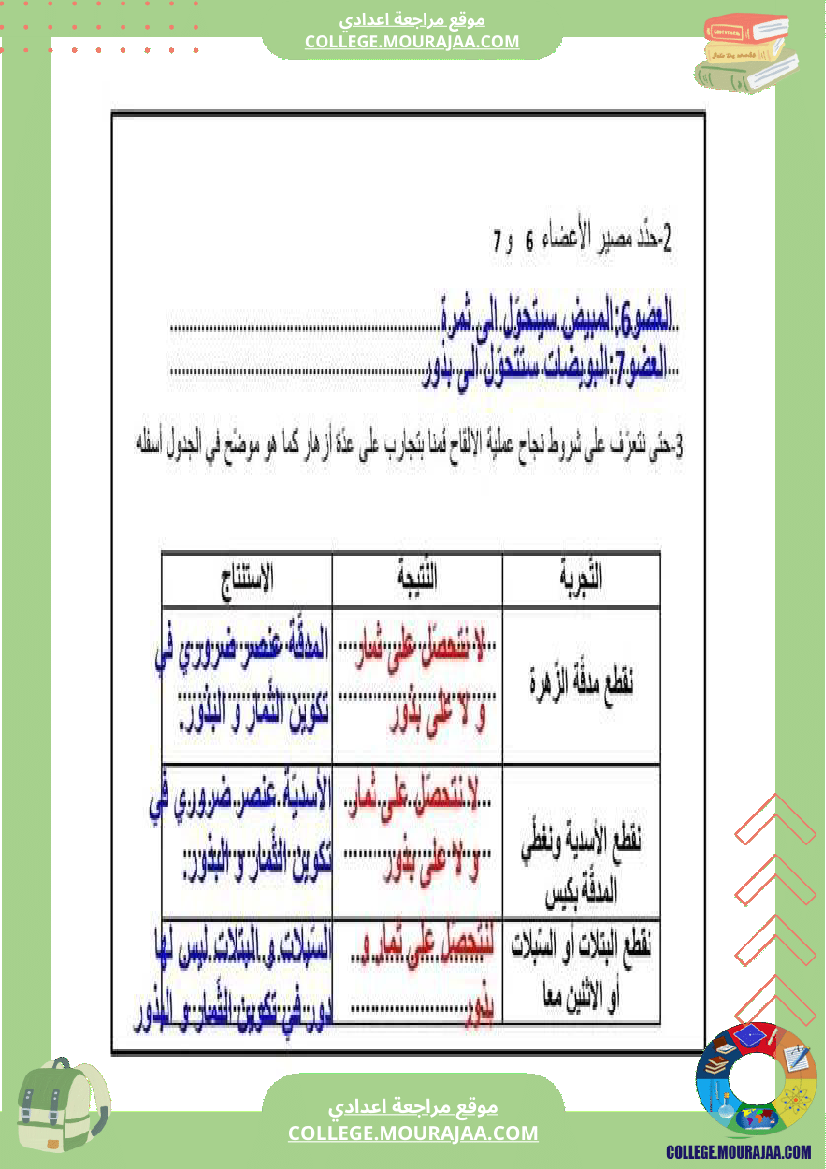 موقع مراجعة اعدادي
COLLEGE.MOURAJAA.COM
2-حدّد مصير الأعضاء 6 و 7
العضو6:المبيض سيتحوّل الى ثمرة
العضو7:البويضات ستتحوّل الى بذور
3-حتى نتعرّف على شروط نجاح عملية الالقاح قمنا بتجارب على عدّة أزهار كما هو موضّح في الجدول أسفله
التّجربة
النّتيجة
الاستنتاج
نقطع مدقّة الزّهرة
لا نتحصّل على ثمار
و لا على بذور
المدقّة عنصر ضروري في
تكوين الثّمار و البذور.
نقطع الأسدية ونغطّي
المدقّة بكيس
لا نتحصّل على ثمار
و لا على بذور
الأسديّة عنصر ضروري في
تكوين الثّمار و البذور.
نقطع البتلات أو السّبلات
أو الاثنين معا
نتحصّل على ثمار و
بذور
السّبلات و البتلات ليس لها
دور في تكوين الثّمار و البذور
موقع مراجعة اعدادي
COLLEGE.MOURAJAA.COM
COLLEGE.MOURAJAA.COM